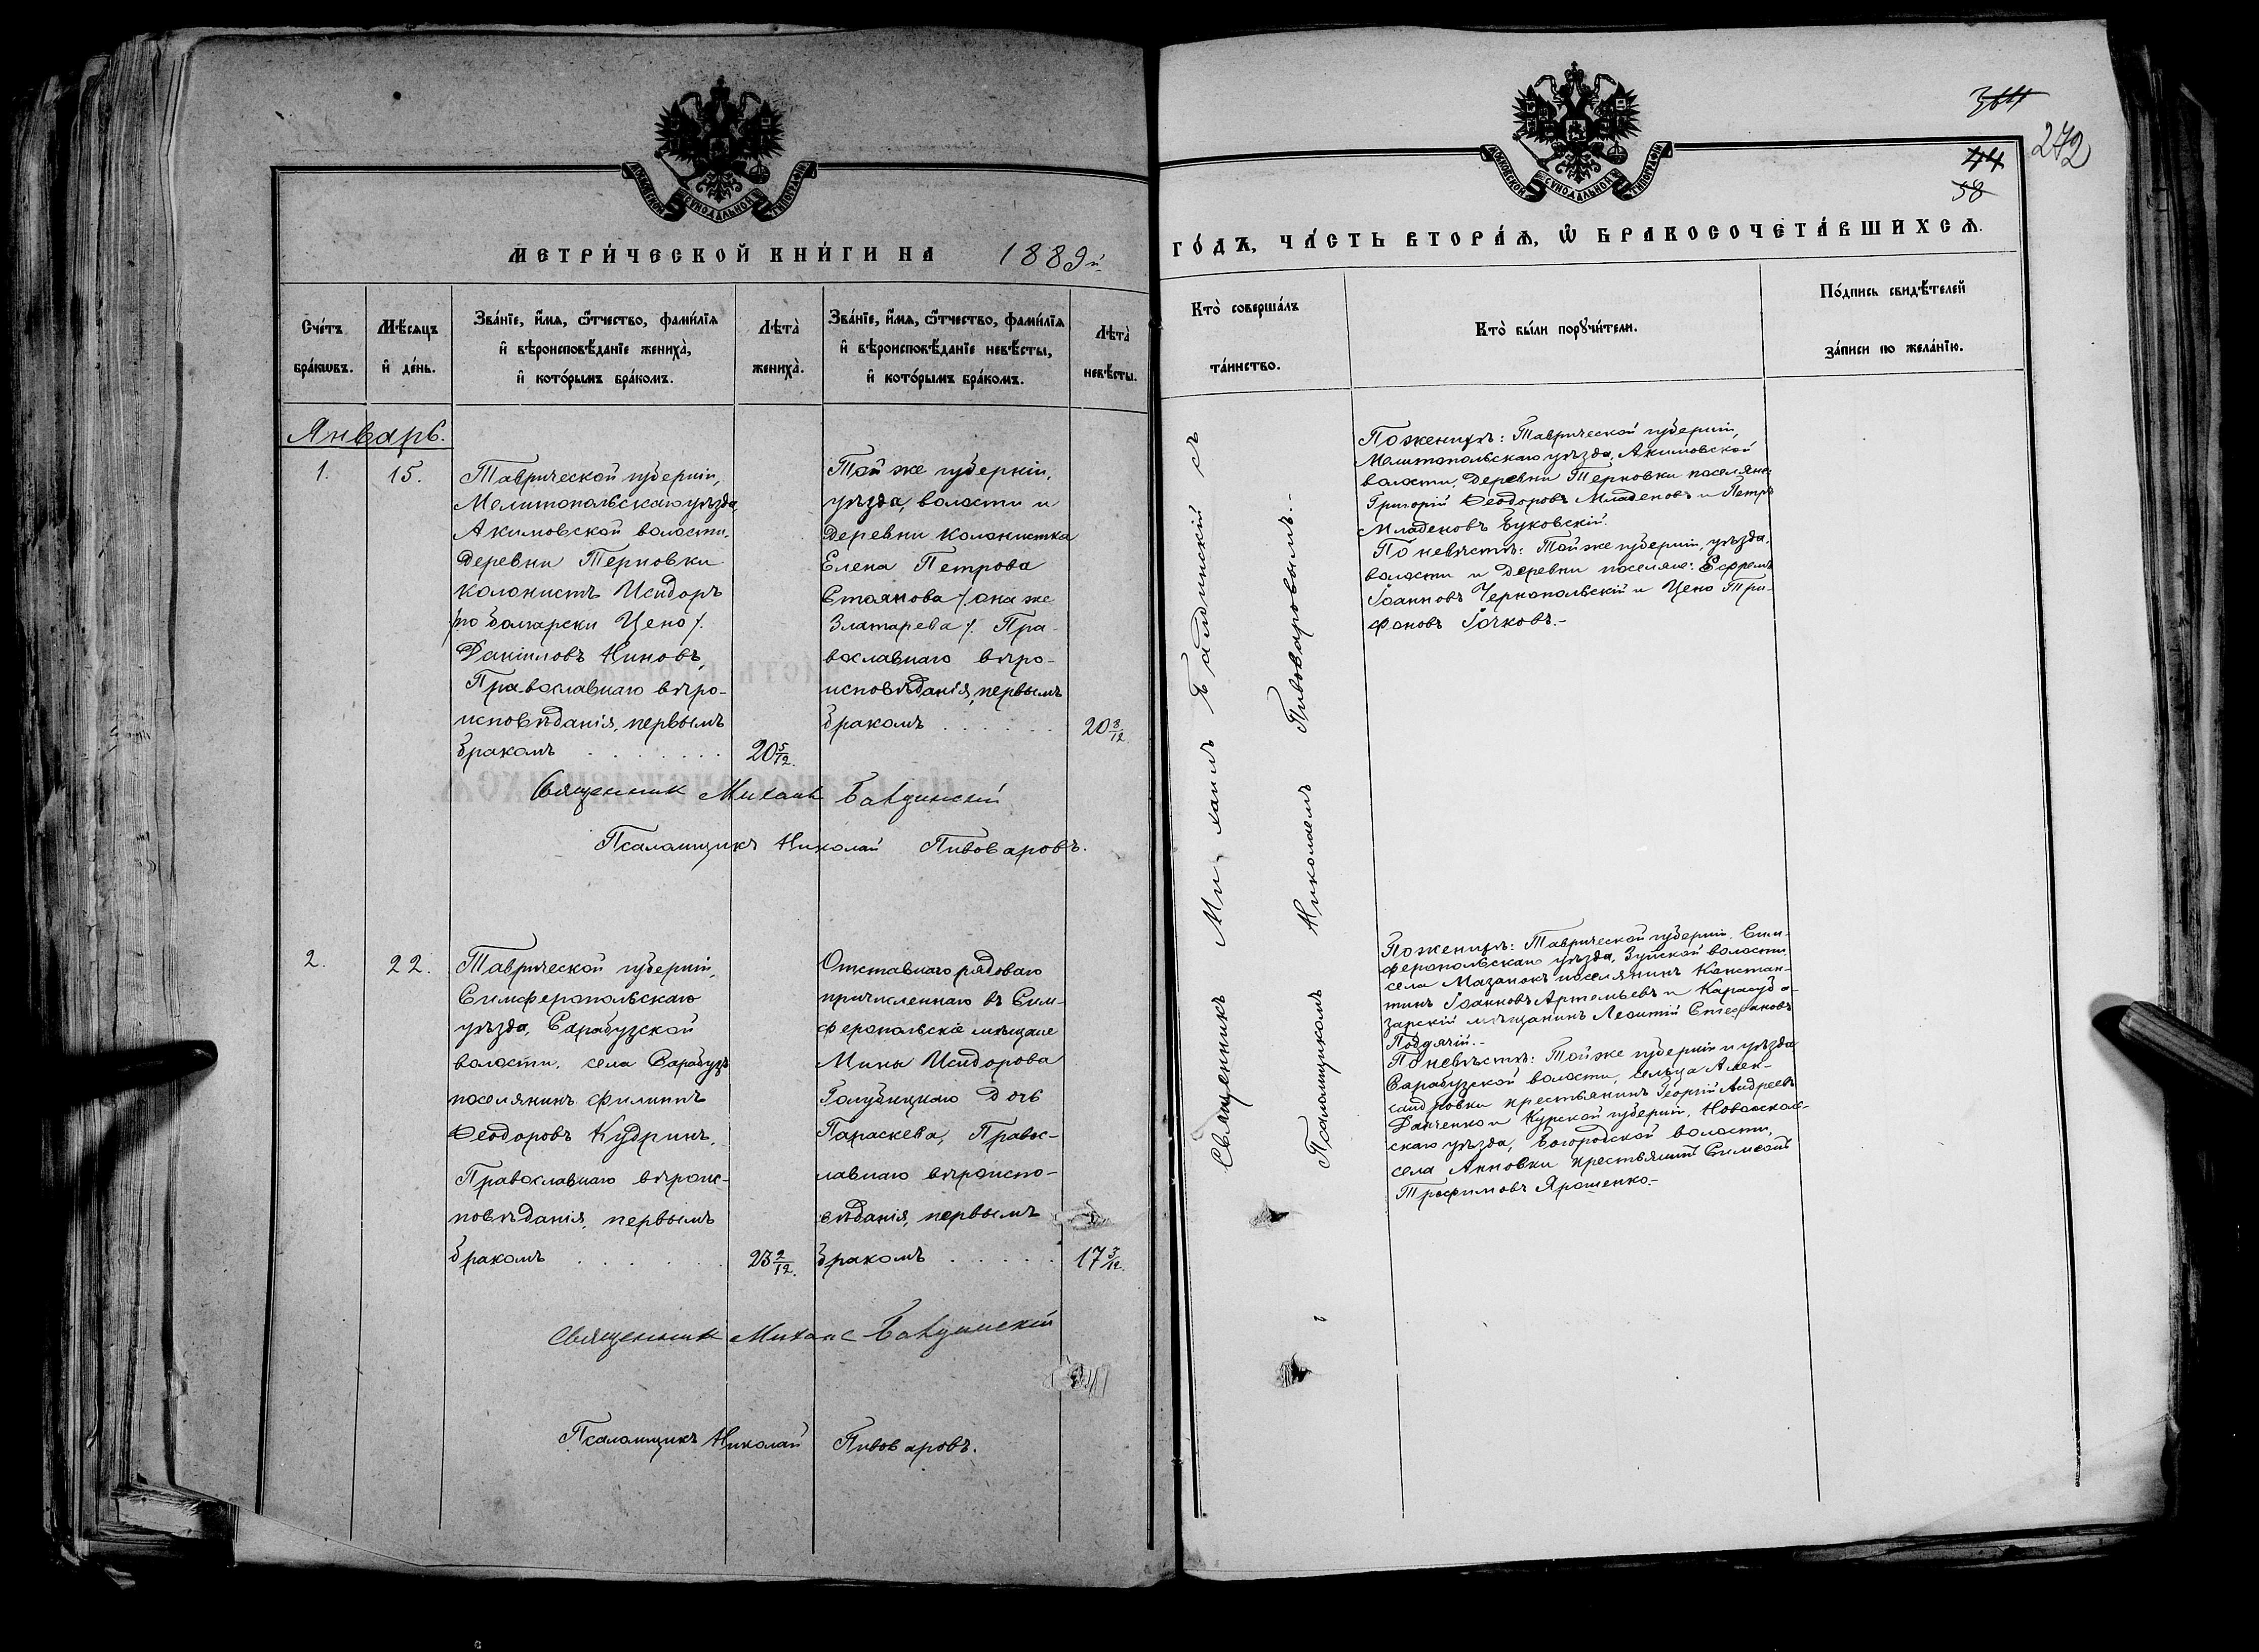 МОСКОВСКОЙ СѴНОДАЛЬНОЙ ТИПОГРАФІИ
МЕТРИ́ЧЕСКОЙ КНИ́ГИ НА 1889й
Сче́тъ бра́кѡвъ.
Мѣ́сяцъ и҆ де́нь.
Зва́нїе, и҆́мѧ, ѻ҆́тчество, фами́лїѧ
и҆ вѣроисповѣ́данїе жениха̀,
и҆ кото́рымъ бра́комъ.
Лѣта̀ жениха̀.
Зва́нїе, и҆́мѧ, ѻ҆́тчество, фами́лїѧ
и҆ вѣроисповѣ́данїе невѣ́сты,
и҆ кото́рымъ бра́комъ.
Лѣта̀ невѣ́сты.
Январь.
1.
15.
Таврической губерніи,
Мелитопольскаго уѣзда,
Акимовской волости,
деревни Терновки
колонистъ Исидоръ
/по болгарски Цено/.
Даніиловъ Ниновъ,
Православнаго вѣро-
исповѣданія, первымъ
бракомъ . . . . . .
20 5/12.
Той же губерніи,
уѣзда, волости и
деревни колонистка
Елена Петрова
Стоянова /она же
Златарева/. Пра-
вославнаго вѣро-
исповѣданія, первымъ
бракомъ . . . . . .
20 8/12.
Священник Михаил Балдинскій
Псаломщикъ Николай Пивоваровъ.
2.
22.
Таврической губерніи,
Симферопольскаго
уѣзда, Сарабузской
волости, села Сарабузъ
поселянинъ Филиппъ
Ѳеодоровъ Кудринъ,
Православнаго вѣроис-
повѣданія, первымъ
бракомъ . . . . .
23 2/12.
Отставнаго рядоваго
причисленнаго въ Сим-
феропольскіе мѣщане
Мины Исидорова
Голубицкаго дочь
Параскева, Правос-
лавнаго вѣроиспо-
вѣданія, первымъ
бракомъ . . . . .
17 3/12.
Священник Михаил Балдинскій
Псаломщикъ Николай Пивоваровъ.
МОСКОВСКОЙ СѴНОДАЛЬНОЙ ТИПОГРАФІИ
364
272
44
58
ГО́ДЪ, ЧА́СТЬ ВТОРА́Ѧ, Ѡ҆ БРАКОСОЧЕТА́ВШИХСѦ.
Кто̀ соверша́лъ
та́инство.
Кто̀ бы́ли порꙋчи́тели.
По́дпись свидѣ́телей
за́писи по жела́нїю.
Священникъ Михаилъ Балдинскій съ
Псаломщикомъ Николаемъ Пивоваровымъ.-
По женихѣ: Таврической губерніи,
Мелитопольскаго уѣзда, Акимовской
волости, деревни Терновки поселяне:
Григорій Ѳеодоровъ Младеновъ и Петръ
Младеновъ Буковскій.
По невѣстѣ: Той же губерніи, уѣзда,
волости и деревни поселяне: Ефремъ
Іоанновъ Чернопольскій и Цено Три-
фоновъ Гочковъ.-
По женихѣ: Таврической губерніи, Сим-
феропольскаго уѣзда, Зуйской волости,
села Мазанокъ поселянинъ Констан-
тинъ Іоанновъ Артемьевъ и Карасуба-
зарскій мѣщанинъ Леонтій Стефановъ
Подячій.-
По невѣстѣ: Той же губерніи и уѣзда
Сарабузской волости, сельца Алек-
сандровки крестьянинъ Георгій Андреевъ
Данченко и Курской губерніи, Новооскол-
скаго уѣзда, Богородской волости,
села Анновки крестьянинъ Симеонъ
Трофимовъ Ярошенко.-